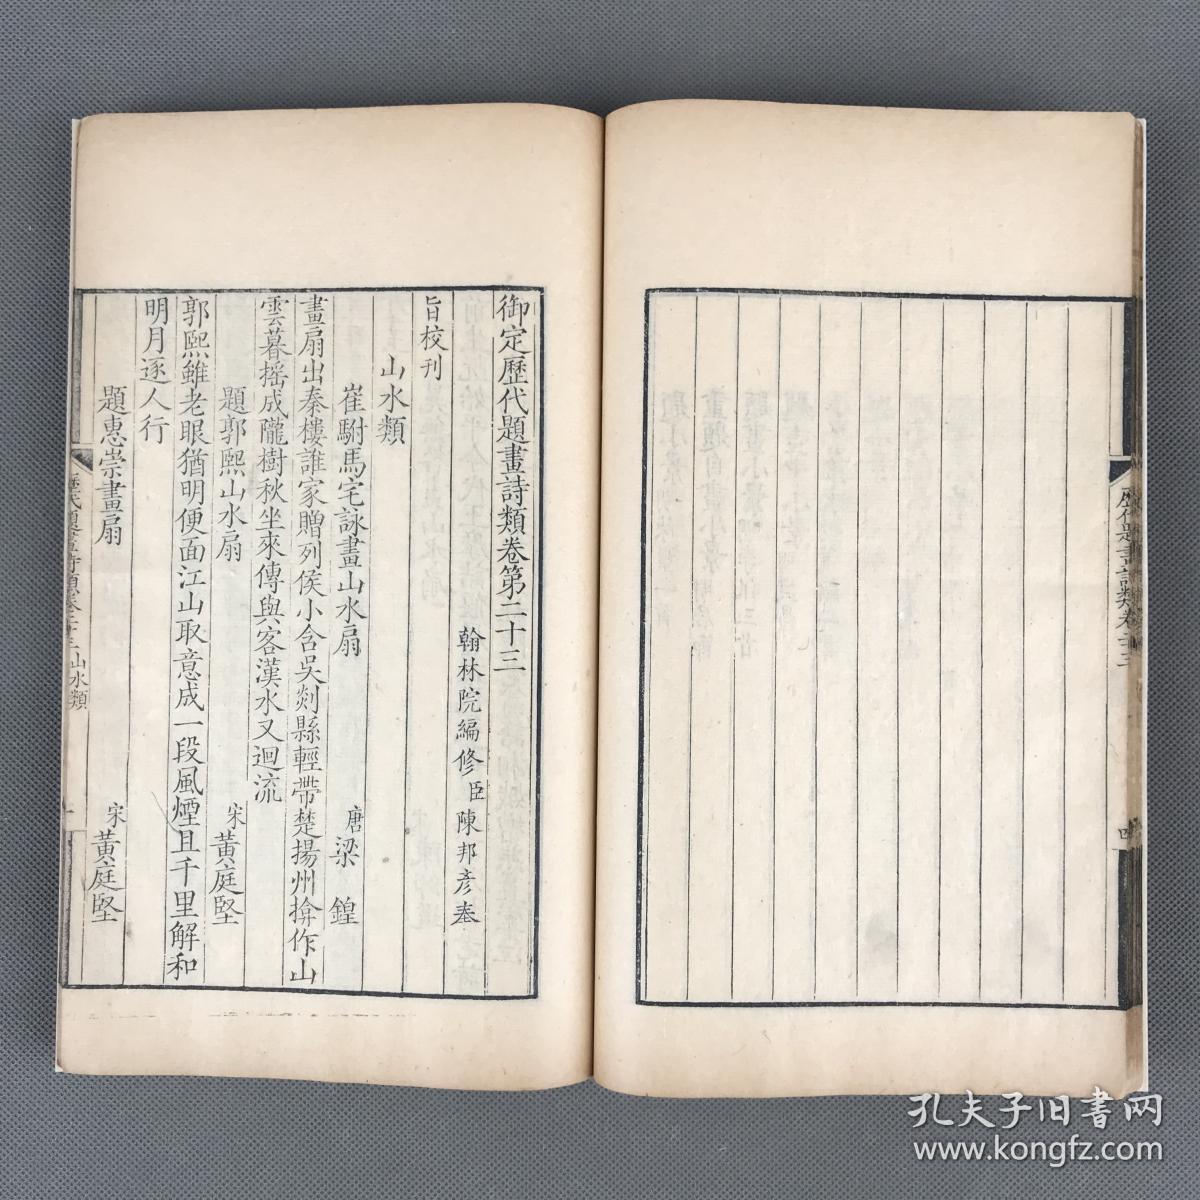 歷代題畫詩類卷二十三
四
御定歷代題畫詩類卷第二十三
翰林院編修臣陳邦彥奉
旨校刊
山水類
崔駙馬宅詠畫山水扇 唐梁鍠
畫扇出秦樓誰家贈列侯小含吳剡縣輕帶楚揚州揜作山
雲暮搖成隴樹秋坐來傳與客漢水又迴流
題郭熙山水扇 宋黃庭堅
郭熙雖老眼猶明便面江山取意成一段風煙且千里解和
明月逐人行
題惠崇畫扇 宋黃庭堅
歷代題畫詩類卷二十三 山水類 一
孔夫子旧书网
www.kongfz.com